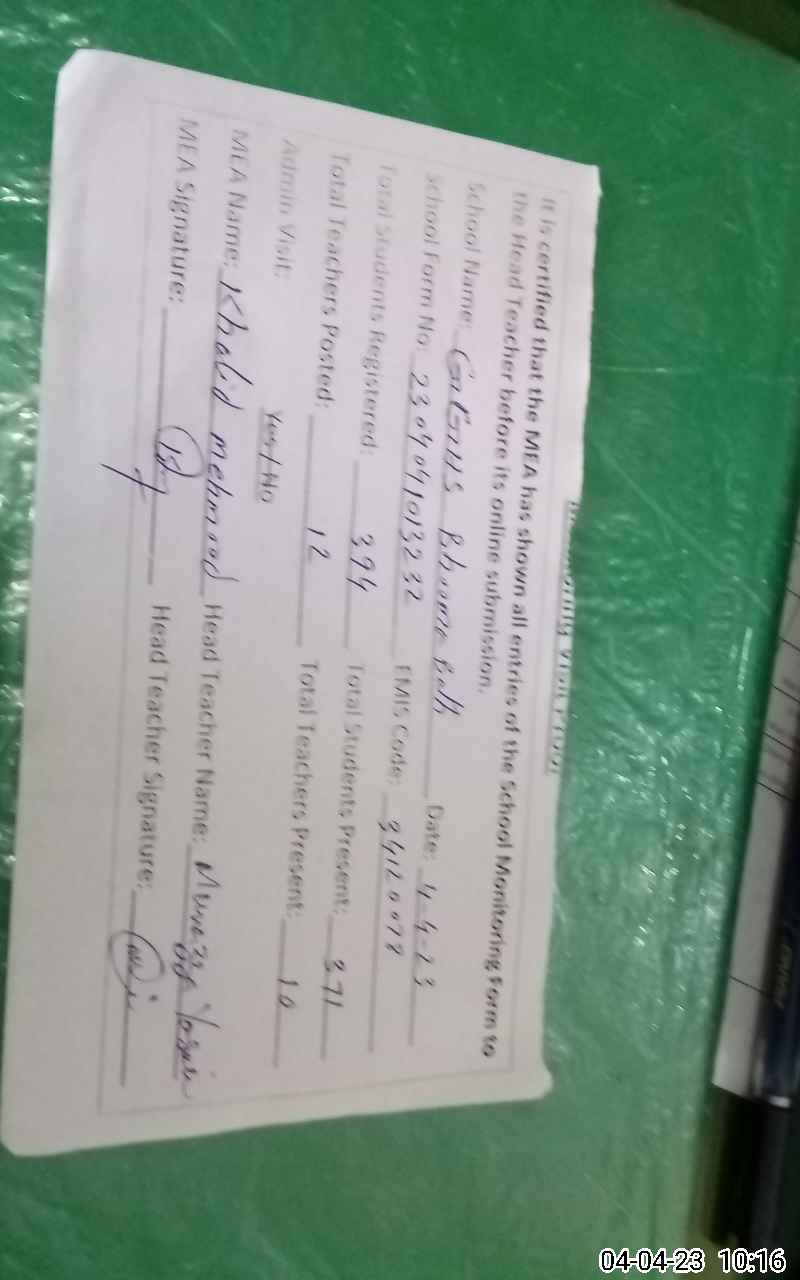 It is certified that the MEA has shown all entries of the School Monitoring Form to
the Head Teacher before its online submission.
School Name: GGHS Date: 4-4-23
School Form No: 2304041013232 EMIS Code: 34120078
Total Students Registered: 394 Total Students Present: 371
Total Teachers Posted: 12 Total Teachers Present: 10
Admin Visit: Yes/No
MEA Name: Khalid mehmood Head Teacher Name:
MEA Signature: Head Teacher Signature:
04-04-23 10:16